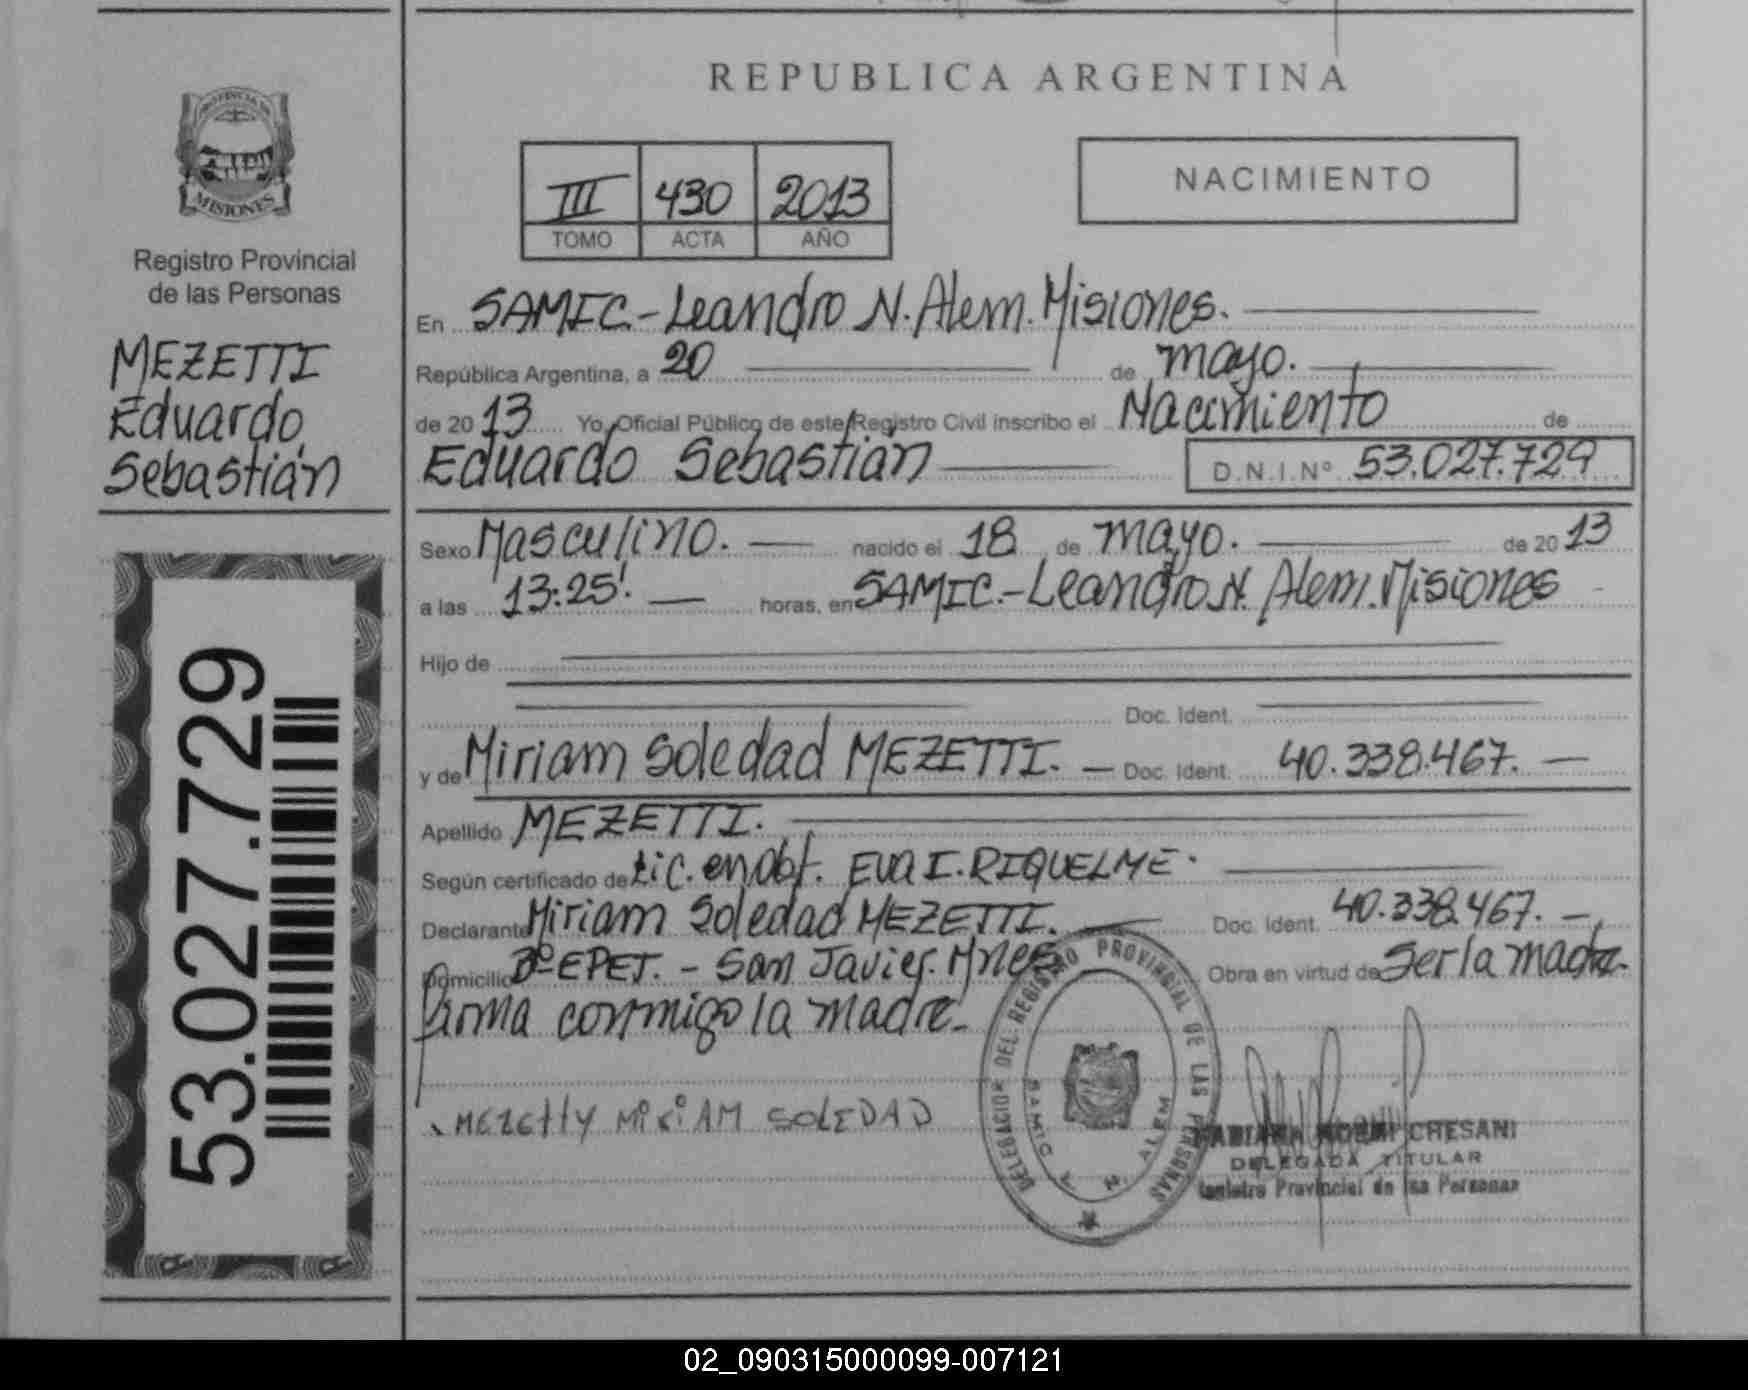 REPUBLICA ARGENTINA
PROVINCIA DE
MISIONES
Registro Provincial
de las Personas
MEZETTI
Eduardo
Sebastián
53.027.729
III 430 2013
TOMO ACTA AÑO
NACIMIENTO
En SAMIC.-Leandro N. Alem. Misiones.
República Argentina, a 20 de mayo.
de 2013 Yo, Oficial Público de este Registro Civil inscribo el Nacimiento de
Eduardo Sebastián D.N.I.Nº 53.027.729
Sexo Masculino. nacido el 18 de mayo. de 2013
a las 13:25'. horas, en SAMIC.-Leandro N. Alem. Misiones
Hijo de
Doc. Ident.
y de Miriam Soledad MEZETTI. Doc. Ident. 40.338.467.
Apellido MEZETTI.
Según certificado de Lic. en Obt. EVA I. RIQUELME.
Declarante Miriam Soledad MEZETTI. Doc. Ident. 40.338.467.
Domicilio Bº EPET. - San Javier. Mnes Obra en virtud de Ser la madre.
firma conmigo la madre-
MEZEttY MiRiAM SOLEDAD
DELEGACION DEL REGISTRO PROVINCIAL DE LAS PERSONAS
SAMIC
N ALEM
FABIANA NOEMI CHESANI
DELEGADA TITULAR
Registro Provincial de las Personas
02_090315000099-007121